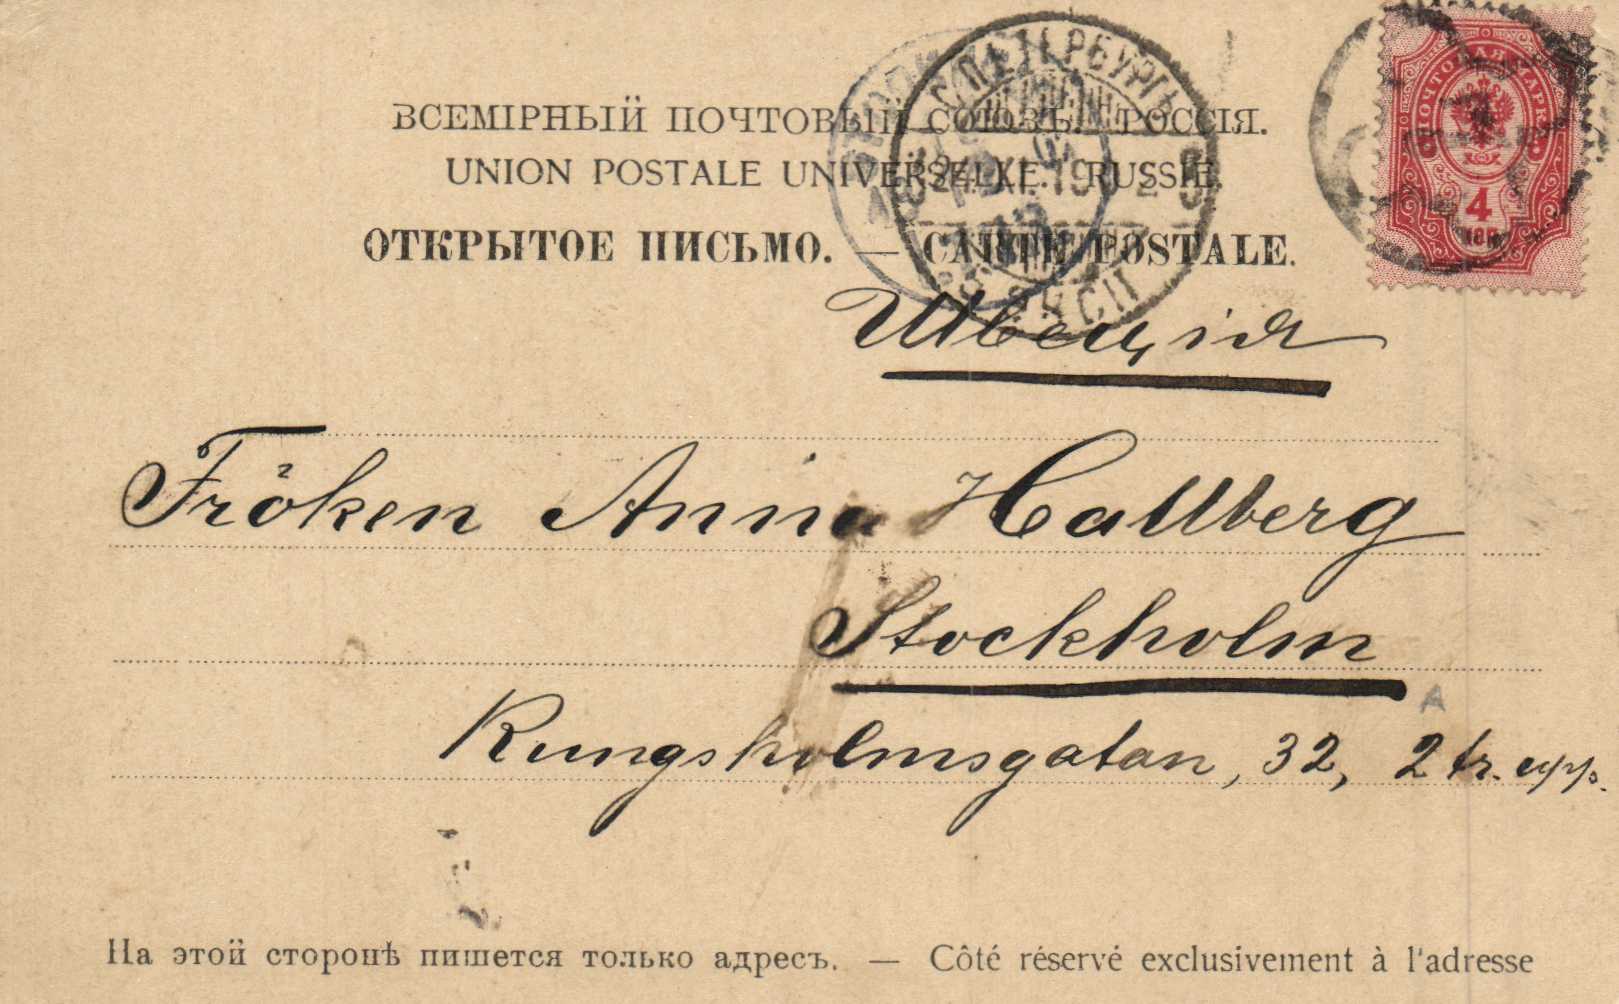 ВСЕМІРНЫЙ ПОЧТОВЫЙ СОЮЗЪ. РОССІЯ.
UNION POSTALE UNIVERSELLE. RUSSIE.
ОТКРЫТОЕ ПИСЬМО. — CARTE POSTALE.
ПОЧТОВАЯ МАРКА
4
КОП
С.ПЕТЕРБУРГЪ
Швеція
Fröken Anna Hallberg
Stockholm
Kungsholmsgatan, 32, 2 tr. upp.
A
На этой сторонѣ пишется только адресъ. — Côté réservé exclusivement à l'adresse